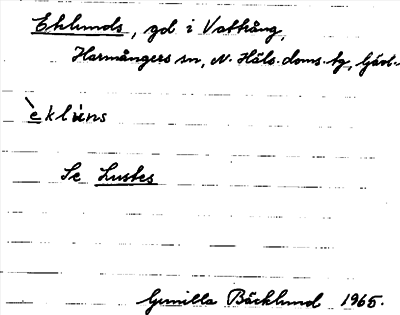 Eklunds, gd i Vattrång,
Harmångers sn, N. Häls. doms. tg, Gävl.
èklùns
Se Lustes
Gunilla Bäcklund 1965.